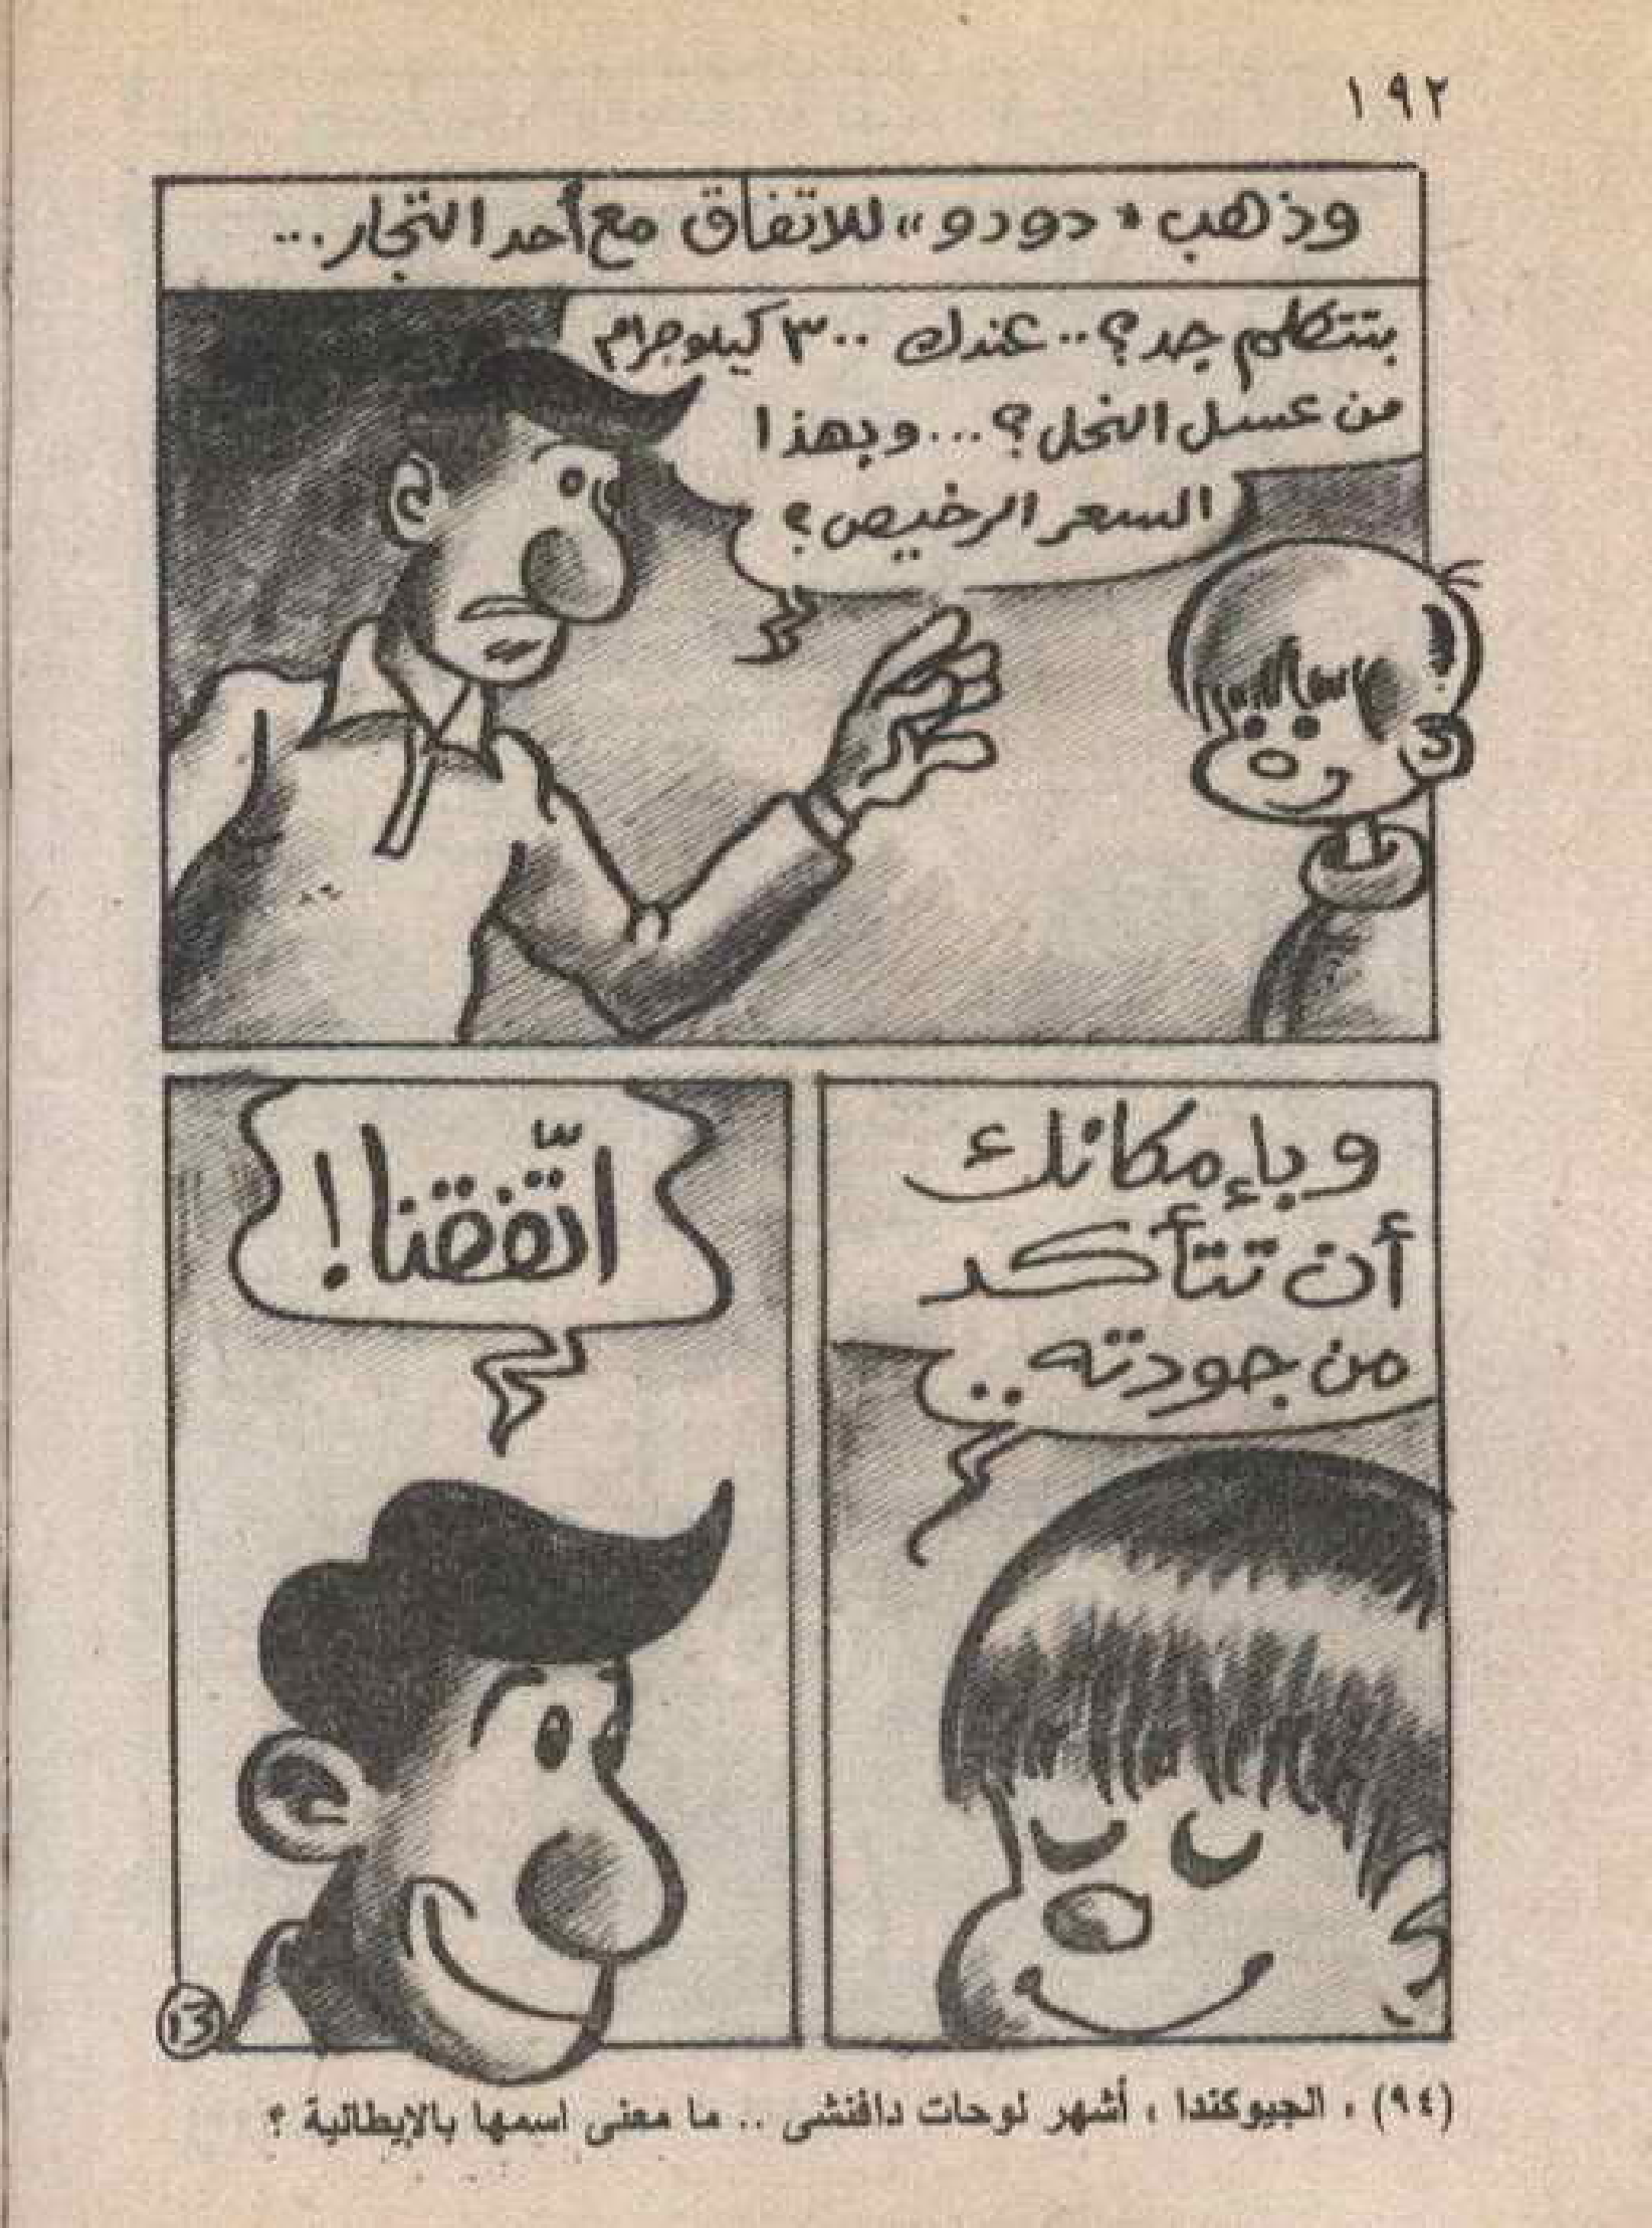 ١٩٢
وذهب «دودو» للاتفاق مع أحد التجار...
بتتكلم جد؟.. عندك ٣٠٠ كيلوجرام
من عسل النحل؟... وبهذا
السعر الرخيص؟
وبإمكانك
أن تتأكد
من جودته..
اتّفقنا!
١٣
(٩٤) «الجيوكندا» أشهر لوحات دافنشى .. ما معنى اسمها بالإيطالية ؟